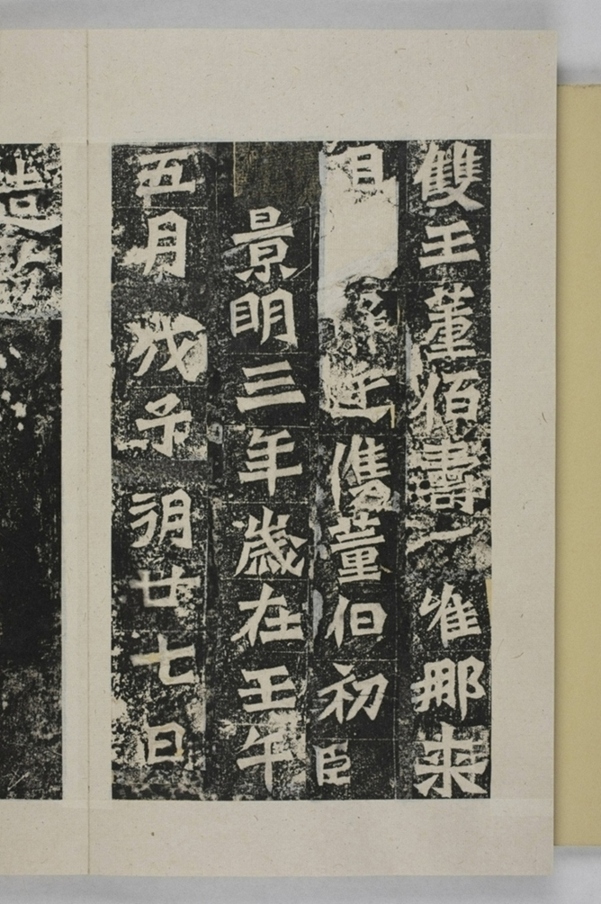 雙王董佰壽一唯那来
廷儁董伯初
景明三年歲在壬午
五月戊子朔廿七日